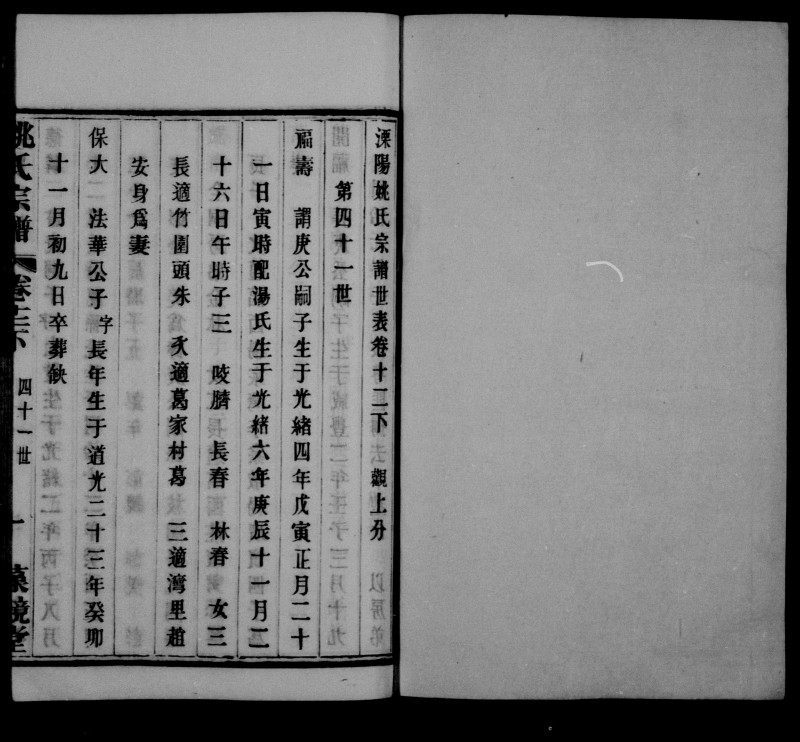 溧陽姚氏宗譜世表卷十二下　觀上分
第四十一世
福壽　謂庚公嗣子生于光緒四年戊寅正月二十
一日寅時配湯氏生于光緒六年庚辰十一月二
十六日午時子三　咬臍　長春　林春　女三
長適竹園頭朱　次適葛家村葛　三適灣里趙
安身爲妻
保大　法華公子字長年生于道光二十三年癸卯
十一月初九日卒葬缺
姚氏宗譜　卷十二下　四十一世　一